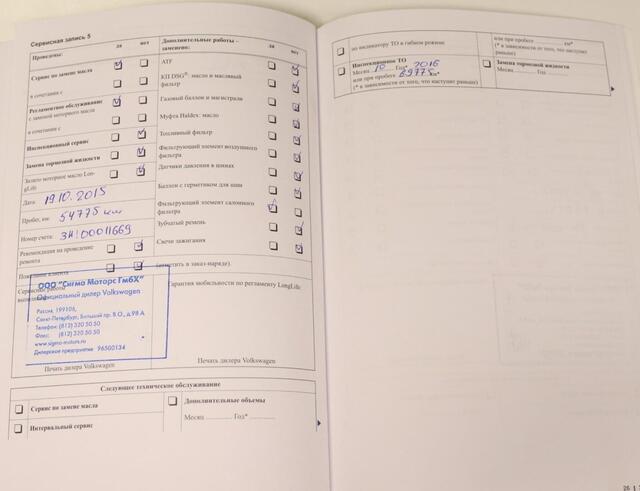 Сервисная запись 5
Проведены:
да
нет
Сервис по замене масла
в сочетании с
Регламентное обслуживание
с заменой моторного масла
в сочетании с
Инспекционный сервис
Замена тормозной жидкости
Залито моторное масло Lon-
gLife
Дата: 19.10.2015
Пробег, км: 54775 км
Номер счета: ЗН00011669
Рекомендация на проведение
ремонта
Пожелание клиента
Сервисные работы
ООО "Сигма Моторс ГмбХ"
Официальный дилер Volkswagen
Россия, 199106,
Санкт-Петербург, Большой пр. В.О., д.98 А
Телефон: (812) 320 50 50
Факс: (812) 320 50 50
www.sigma-motors.ru
Дилерское предприятие 96500134
Печать дилера Volkswagen
Дополнительные работы -
заменено:
да
нет
ATF
КП DSG®: масло и масляный
фильтр
Газовый баллон и магистрали
Муфта Haldex: масло
Топливный фильтр
Фильтрующий элемент воздушного
фильтра
Датчики давления в шинах
Баллон с герметиком для шин
Фильтрующий элемент салонного
фильтра
Зубчатый ремень
Свечи зажигания
(отметить в заказ-наряде).
Гарантия мобильности по регламенту LongLife
Печать дилера Volkswagen
Следующее техническое обслуживание
Сервис по замене масла
Интервальный сервис
Дополнительные объемы
Месяц Год*
по индикатору ТО в гибком режиме
или при пробеге км*
(* в зависимости от того, что наступит
раньше)
Инспекционное ТО
Месяц 10 Год* 2016
или при пробеге 69775 км*
(* в зависимости от того, что наступит раньше)
Замена тормозной жидкости
Месяц Год